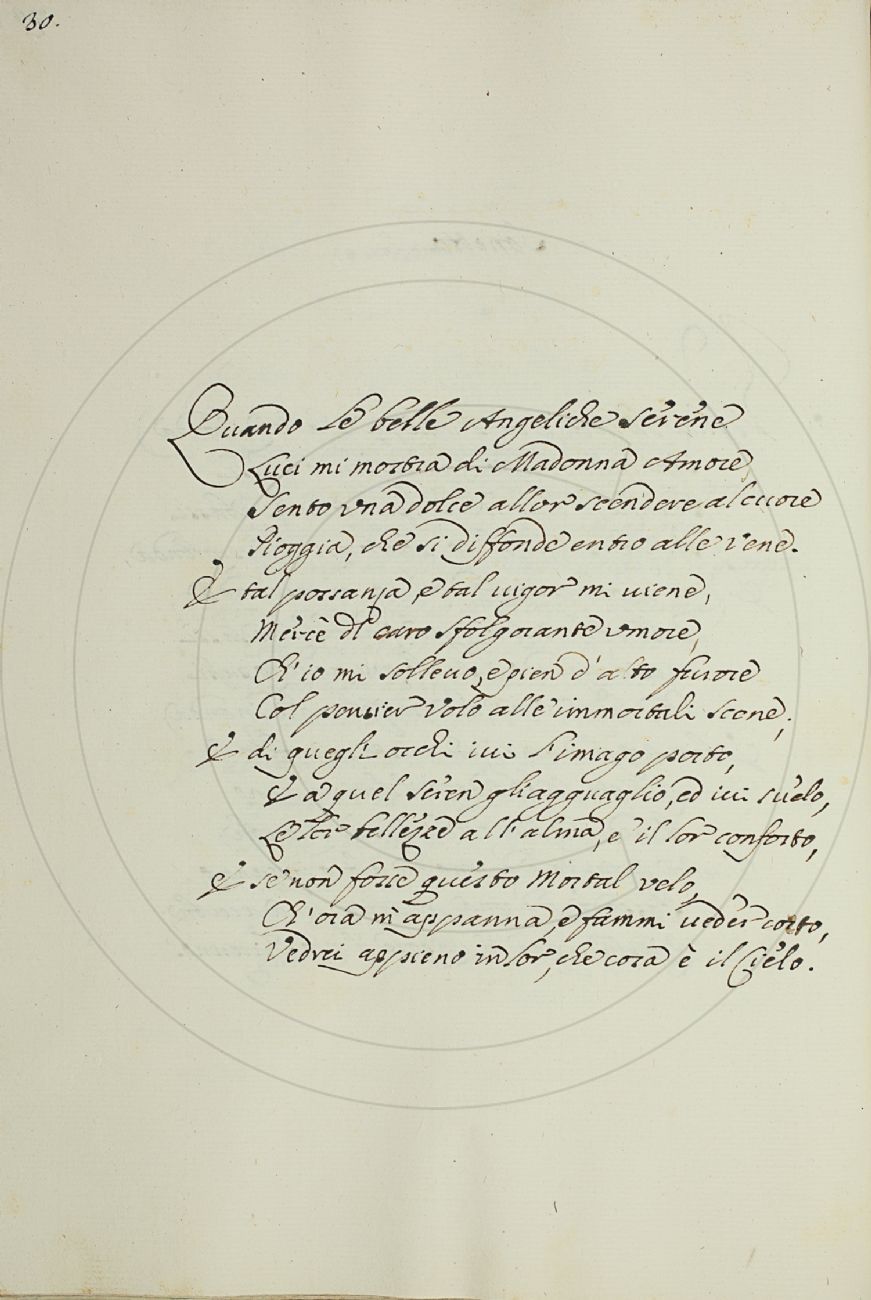 30.
Quando Le belle Angeliche Serene
Luci mi mostra di Madonna Amore
Sento una dolce allor scendere al cuore
Pioggia, che si diffonde entro alle vene.
E tal possanza, e tal vigor mi viene,
Mercè di caro sfolgorante umore,
Ch'io mi sollevo, e pien d'alto furore
Col pensier volo alle immortali scene;
E di quegli occhi ivi l'imago porto,
E a quel seren gli agguaglio, ed ivi svelo,
Le lor bellezze all'alma, e il lor conforto,
E se non fosse questo Mortal velo,
Ch'ora m'appanna, e fammi veder corto,
Vedrei appieno in lor, che cosa è il Cielo.